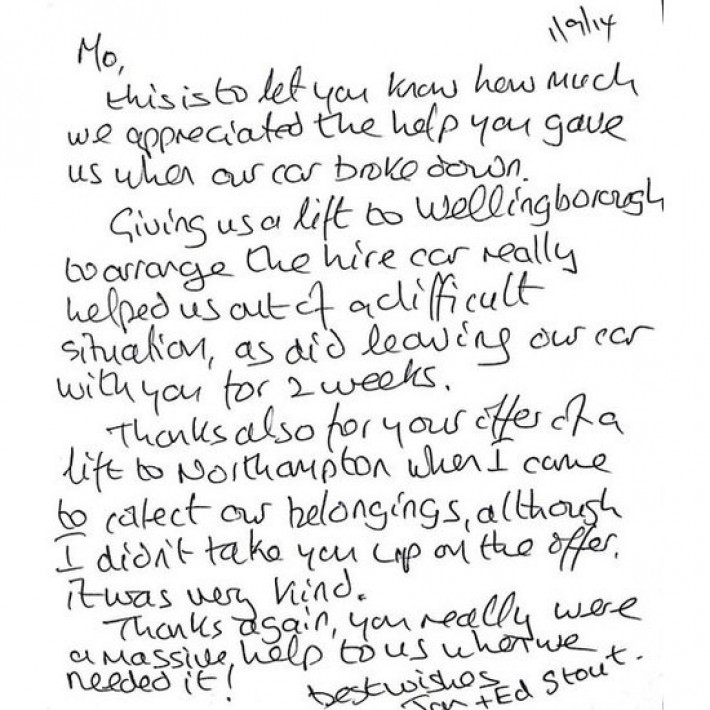 1/9/14
Mo,
this is to let you know how much
we appreciated the help you gave
us when our car broke down.
Giving us a lift to Wellingborough
to arrange the hire car really
helped us out of a difficult
situation, as did leaving our car
with you for 2 weeks.
Thanks also for your offer of a
lift to Northampton when I came
to collect our belongings, although
I didn't take you up on the offer,
it was very kind.
Thanks again, you really were
a massive help to us when we
needed it!
best wishes
+ Ed Stout.